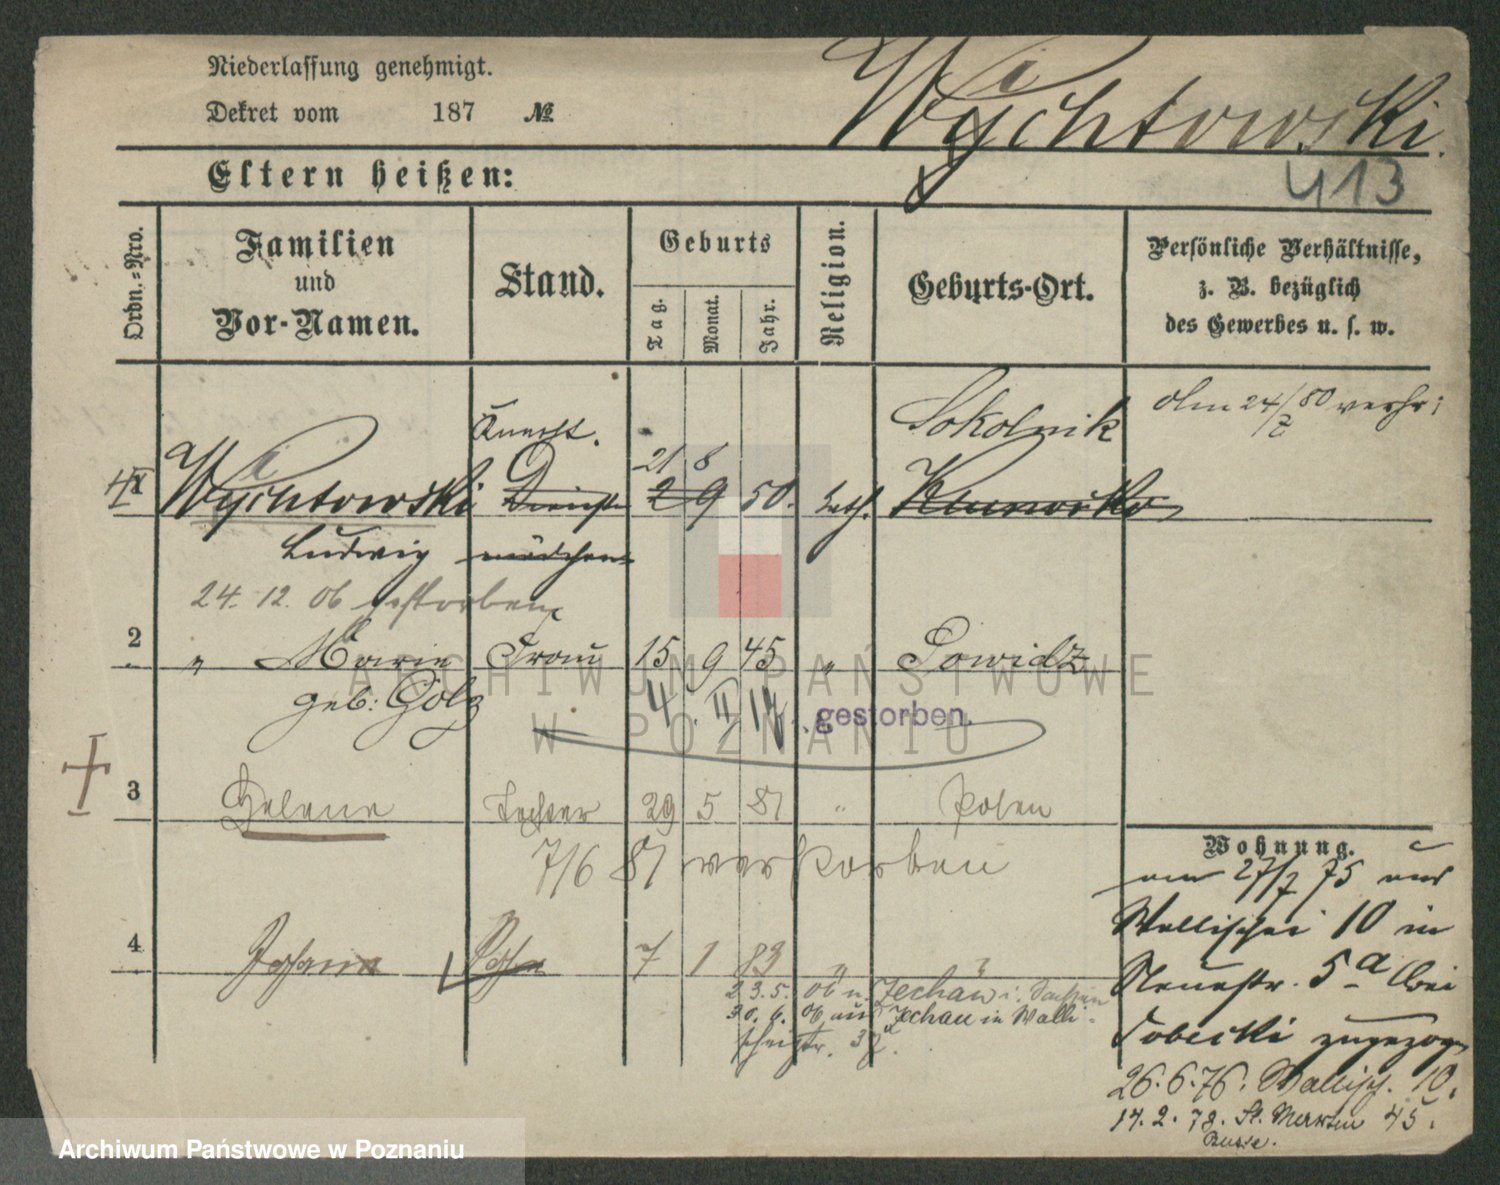 Niederlassung genehmigt.
Dekret vom 187 №
Wychtowski.
413
Eltern heißen:
Ordn.-Nro.
Familien
und
Vor-Namen.
Stand.
Geburts
Tag.
Monat.
Jahr.
Religion.
Geburts-Ort.
Persönliche Verhältnisse,
z. B. bezüglich
des Gewerbes u. s. w.
Knecht.
21 8
Sokolnik
24/7 80
Wychtowski
Dienst
2 9 50.
kath.
Ludwig
mädchen
24. 12. 06 gestorben
2
" Marie
Frau
15 9 45
"
Powidz
geb: Golz
4. II 17.
gestorben.
3
Helene
Tochter
29 5 81
"
Posen
7/6 81 verstorben
4
Johann
Sohn
7 1 83
"
23.5. 06 n. Zechau i. Sachsen
30. 6. 06 aus Zechau in Walli-
scheistr.
Wohnung.
am 27/7 75 aus
Wallischei 10 in
Neuestr. 5a bei
zugezog
26.6.76. Wallisch. 10.
17. 2. 78. St. Martin 45.
Busse.
ARCHIWUM PAŃSTWOWE
W POZNANIU
Archiwum Państwowe w Poznaniu